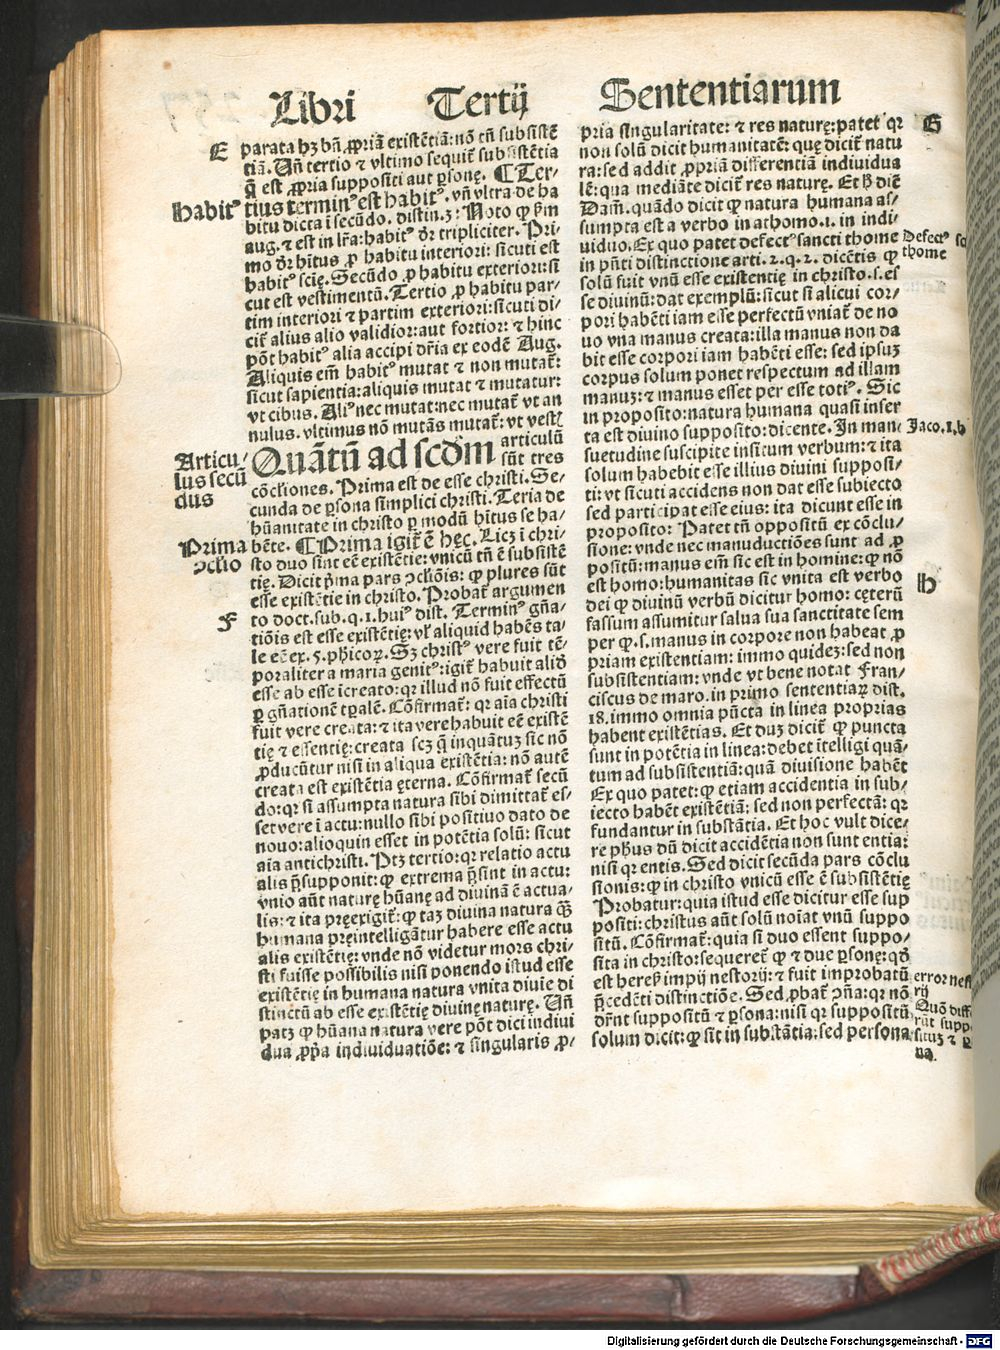 Libri Tertij Sententiarum
E
parata hꝫ bñ ꝓpriā existētiā: nō tñ subsistē
tiā. Uñ tertio ⁊ vltimo sequit᷑ subsistētia
q̄ est ꝓpria suppositi aut ꝑsonę. ¶ Ter-
Habitꝰ
tius terminꝰ est habitꝰ. vñ vltra de ha
bitu dicta ī secūdo. distin. 3: Noto ꝙ ẜm
aug. ⁊ est in lr̄a: habitꝰ dr̄ tripliciter. Pri-
mo dr̄ hītus ꝓ habitu interiori: sicuti est
habitꝰ scīę. Secūdo ꝓ habitu exteriori: si
cut est vestimentū. Tertio ꝓ habitu par-
tim interiori ⁊ partim exteriori: sicuti di-
cit᷑ alius alio validior: aut fortior: ⁊ hinc
pōt habitꝰ alia accipi dr̄ia ex eodē Aug.
Aliquis em̄ habitꝰ mutat ⁊ non mutat᷑:
sicut sapientia: aliquis mutat ⁊ mutatur:
vt cibus. Aliꝰ nec mutat: nec mutat᷑ vt an
nulus. vltimus nō mutās mutat᷑: vt vest᷑
Articu-
lus secū
dus
Quātū ad scd̄m articulū
sūt tres
cōclīones. Prima est de esse christi. Se-
cunda de ꝑsona simplici christi. Teria de
hūanitate in christo ꝑ modū hītus se ha-
Prima
ↄclīo
bēte. ¶ Prima igit᷑ ē hęc. Licꝫ i chri-
sto duo sint eē existētie: vnicū tñ ē subsistē
tię. Dicit p̄ma pars ↄclīōis: ꝙ plures sūt
esse existētie in christo. Probat᷑ argumen
F
to doct. sub. q. 1. huiꝰ dist. Terminꝰ gn̄a-
tiōis est esse existētię: vĺ aliquid habēs ta-
le eē ex. 5. phicoꝝ. Sꝫ christꝰ vere fuit tē-
poraliter a maria genitꝰ: igit᷑ habuit aliq̄d
esse ab esse īcreato: qꝛ illud nō fuit effectū
ꝑ gn̄ationē tꝑalē. Cōfirmat᷑: qꝛ aīa christi
fuit vere creata: ⁊ ita vere habuit eē existē
tię ⁊ essentię: creata scꝫ q̄ inquātuꝫ sic nō
ꝓducūtur nisi in aliqua existētia: nō autē
creata est existētia ęterna. Cōfirmat᷑ secū
do: qꝛ si assumpta natura sibi dimittat᷑ es-
set vere ī actu: nullo sibi positiuo dato de
nouo: alioquin esset in potētia solū: sicut
aīa antichristi. Ptꝫ tertio: qꝛ relatio actu
alis p̄supponit: ꝙ extrema p̄sint in actu:
vnio aūt naturę hūanę ad diuinā ē actua-
lis: ⁊ ita pręexigit᷑: ꝙ taꝫ diuina natura q̄ꝫ
humana pręintelligātur habere esse actu
alis existētię: vnde nō videtur mors chri-
sti fuisse possibilis nisi ponendo istud esse
existētię in humana natura vnita diuie di
stinctū ab esse existētię diuinę naturę. Uñ
patꝫ ꝙ hūana natura vere pōt dici indiui
dua ꝓp̄a indiuiduatiōe: ⁊ singularis ꝓ-
pria singularitate: ⁊ res naturę: patet qꝛ
G
non solū dicit humanitatē: quę dicit᷑ natu
ra: sed addit ꝓpriā differentiā indiuidua
lē: qua mediāte dicit᷑ res naturę. Et ħ dic̄
Dam̄. quādo dicit ꝙ natura humana as-
sumpta est a verbo in athomo. i. in indi-
uiduo. Ex quo patet defectꝰ sancti thome
Defectꝰ
thome
in p̄nti distinctione arti. 2. q. 2. dicētis ꝙ
solū fuit vnū esse existentię in christo. s. es
se diuinū: dat exemplū: sicut si alicui cor-
pori habēti iam esse perfectū vniat᷑ de no
uo vna manus creata: illa manus non da
bit esse corpori iam habēti esse: sed ipsuꝫ
corpus solum ponet respectum ad illam
manuꝫ: ⁊ manus esset per esse totiꝰ. Sic
in proposito: natura humana quasi inser
ta est diuino supposito: dicente. In man-
Jaco. 1. b
suetudine suscipite insitum verbum: ⁊ ita
solum habebit esse illius diuini supposi-
ti: vt sicuti accidens non dat esse subiecto
sed participat esse eius: ita dicunt esse in
proposito: Patet tñ oppositū ex cōclu-
sione: vnde nec manuductiōes sunt ad ꝓ
positū: manus em̄ sic est in homine: ꝙ nō
est homo: humanitas sic vnita est verbo
H
dei ꝙ diuinū verbū dicitur homo: cęterū
fassum assumitur salua sua sanctitate sem
per ꝙ. s. manus in corpore non habeat ꝓ
priam existentiam: immo quidez: sed non
subsistentiam: vnde vt bene notat Fran-
ciscus de maro. in primo sententiaꝝ dist.
18. immo omnia pūcta in linea proprias
habent existētias. Et duꝫ dicit᷑ ꝙ puncta
sunt in potētia in linea: debet ītelligi quā-
tum ad subsistentiā: quā diuisione habēt
Ex quo patet: ꝙ etiam accidentia in sub-
iecto habēt existētiā: sed non perfectā: qꝛ
fundantur in substātia. Et hoc vult dice-
re phūs dū dicit accidētia non sunt entia:
nisi qꝛ entis. Sed dicit secūda pars cōclu
sionis: ꝙ in christo vnicū esse ē subsistētię
Probatur: quia istud esse dicitur esse sup
positi: christus aūt solū noīat vnū suppo
sitū. Cōfirmat᷑: quia si duo essent suppo-
sita in christo: sequeret᷑ ꝙ ⁊ due ꝑsonę: qd̄
est heresꝫ impij nestorij: ⁊ fuit improbatū
error nest
rij
p̄cedēti distinctiōe. Sed ꝓbat᷑ ↄ̄ña: qꝛ nō
Quō diff
dr̄nt suppositū ⁊ ꝑsona: nisi qꝛ suppositū
rūt supp
solum dicit: ꝙ sit in substātia: sed persona
situꝫ ⁊ ꝑ
na.
Digitalisierung gefördert durch die Deutsche Forschungsgemeinschaft - DFG